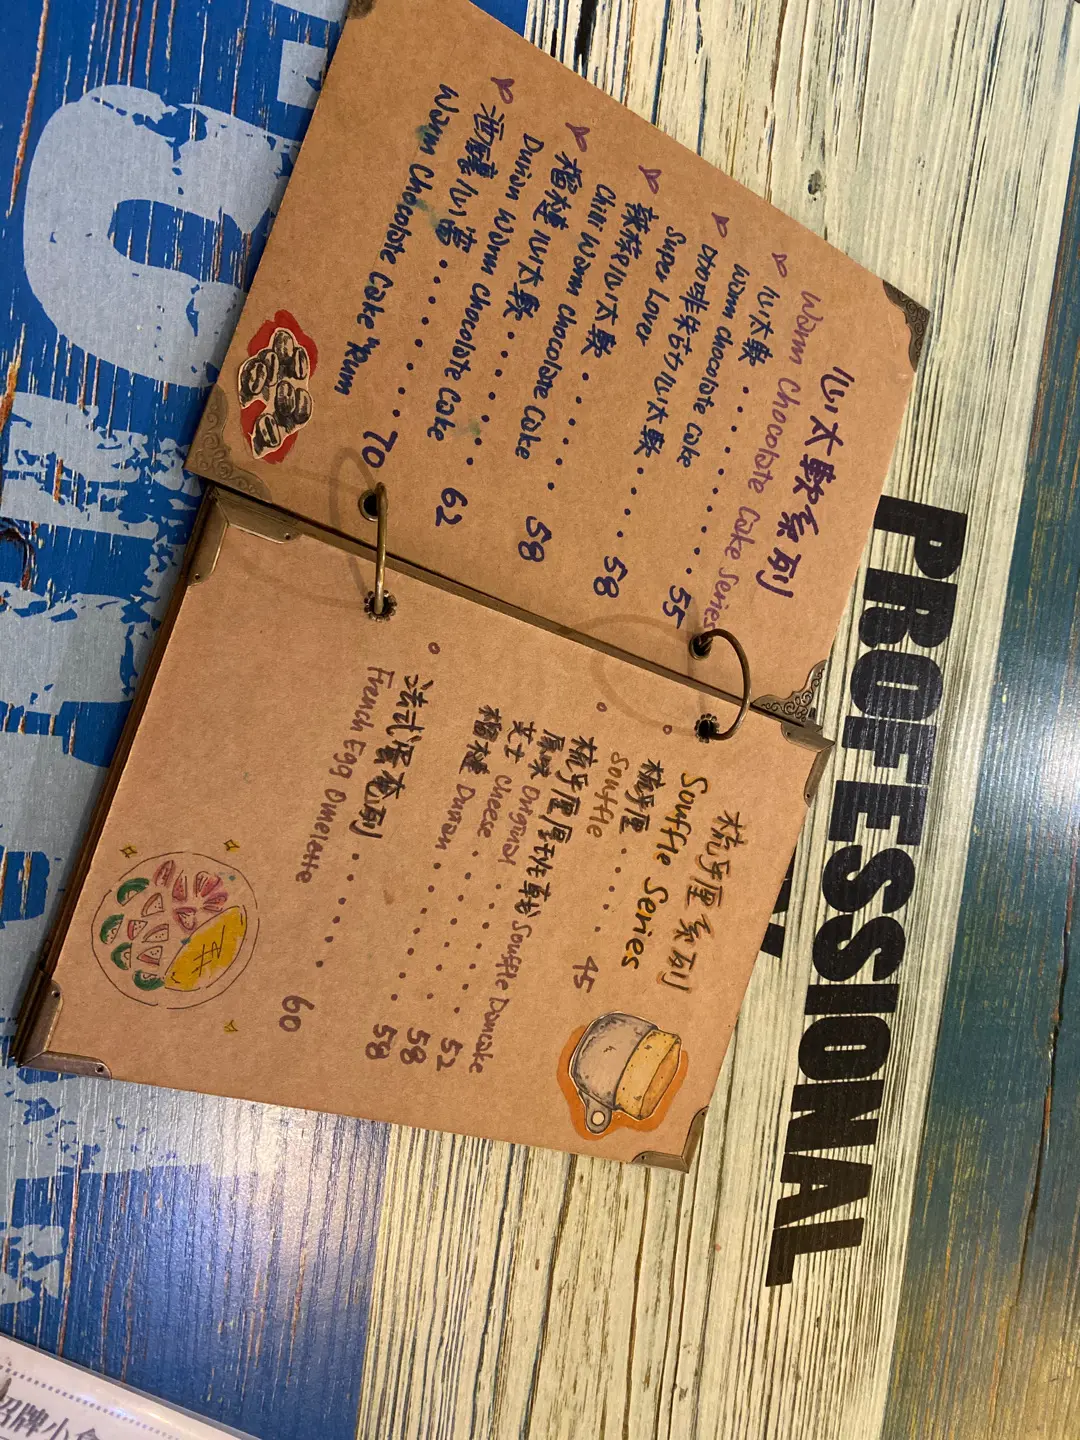 心太軟系列
Warm Chocolate Cake Series
心太軟 ........ 55
Warm Chocolate Cake
朱古力心太軟 .... 58
Super Lover
辣椒心太軟 ...... 58
Chili Warm Chocolate Cake
榴槤心太軟 ...... 62
Durian Warm Chocolate Cake
酒釀心 ........ 70
Warm Chocolate Cake "Rum
梳乎厘系列
Souffle Series
梳乎厘 ..... 45
Souffle
梳乎厘厚班戟 Souffle Pancake
原味 Original ....... 52
芝士 Cheese ....... 58
榴槤 Durian ....... 58
法式奄列 ....... 60
French Egg Omelette
PROFESSIONAL
招牌小食